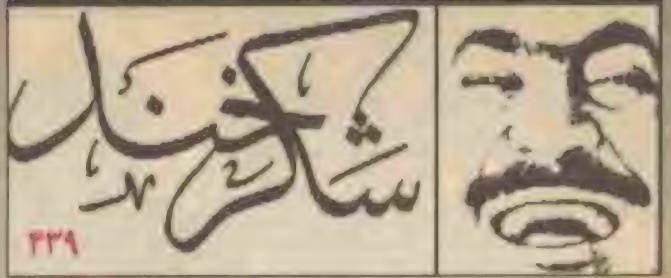 شکرخند
۳۳۹